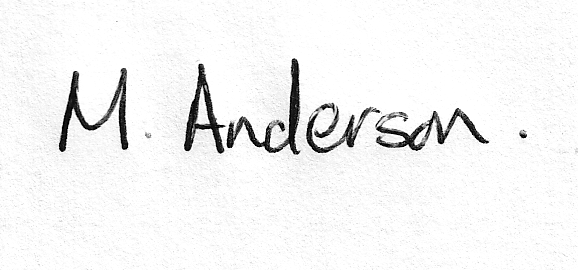 M. Anderson.